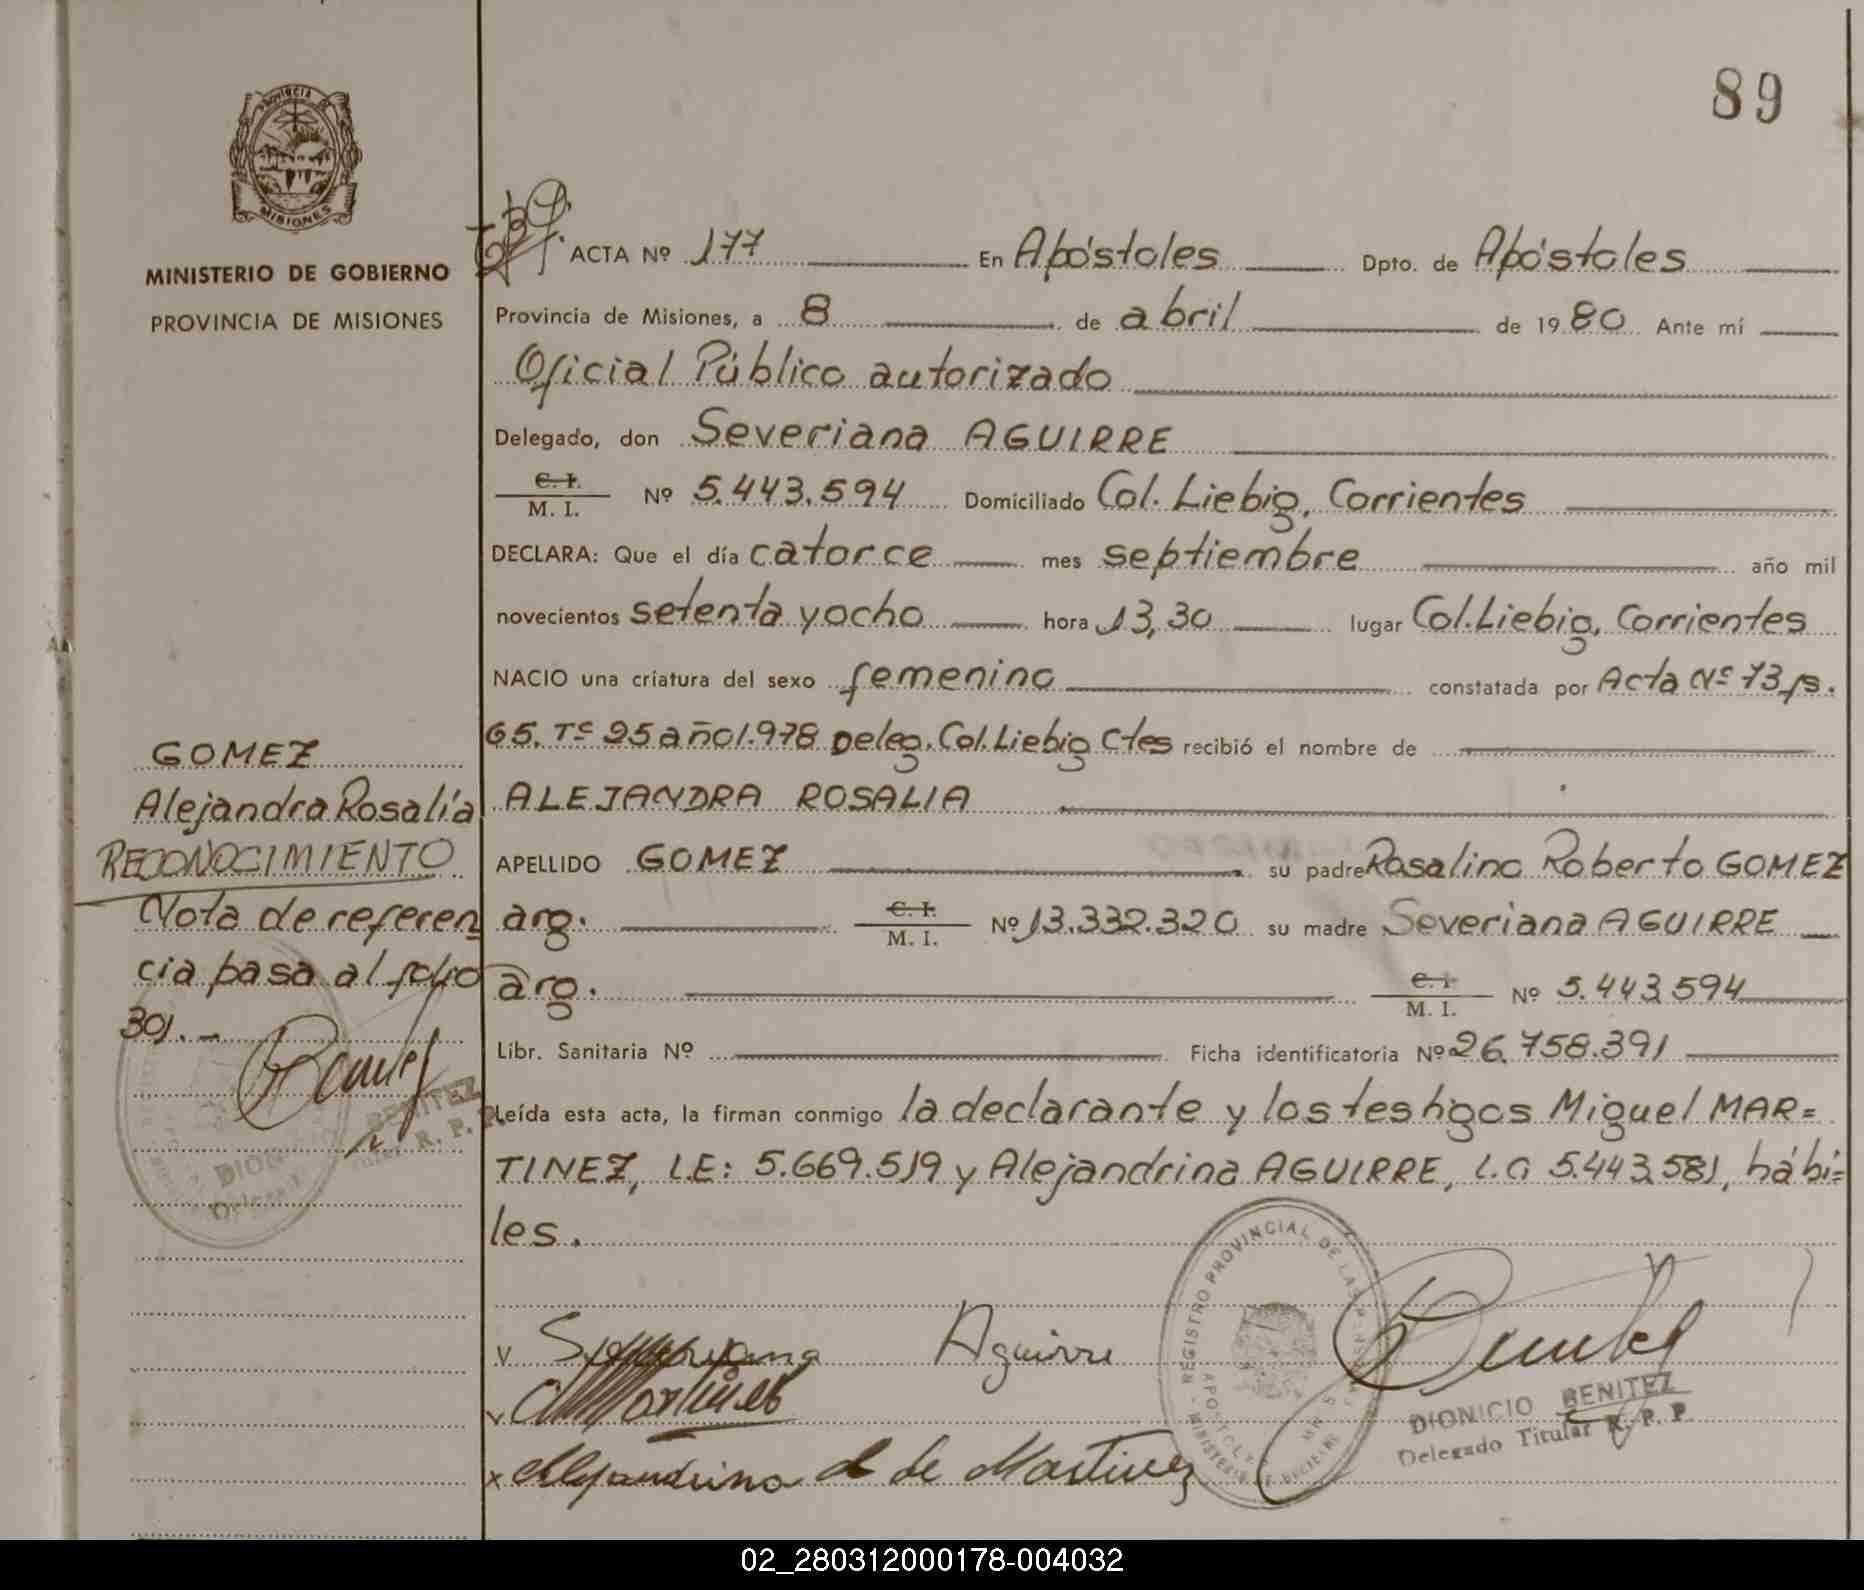 89
PROVINCIA DE
MISIONES
MINISTERIO DE GOBIERNO
PROVINCIA DE MISIONES
ACTA Nº 177 En Apóstoles Dpto. de Apóstoles
Provincia de Misiones, a 8 de abril de 1980 Ante mí
Oficial Público autorizado
Delegado, don Severiana AGUIRRE
C. I. / M. I. Nº 5.443.594 Domiciliado Col. Liebig, Corrientes
DECLARA: Que el día catorce mes septiembre año mil
novecientos setenta y ocho hora 13,30 lugar Col. Liebig, Corrientes
NACIO una criatura del sexo femenino constatada por Acta Nº 73 fs.
65. Tº 25 año 1.978 Deleg. Col. Liebig Ctes recibió el nombre de
ALEJANDRA ROSALIA
APELLIDO GOMEZ su padre Rosalino Roberto GOMEZ
arg. C. I. / M. I. Nº 13.332.320 su madre Severiana AGUIRRE
arg. C. I. / M. I. Nº 5.443.594
Libr. Sanitaria Nº Ficha identificatoria Nº 26.758.391
Leída esta acta, la firman conmigo la declarante y los testigos Miguel MAR=
TINEZ, L.E: 5.669.519 y Alejandrina AGUIRRE, L.C 5.443.581, hábi=
les.
GOMEZ
Alejandra Rosalía
RECONOCIMIENTO
Nota de referen
cia pasa al folio
301.-
BENITEZ
DION
v Severiana Aguirre
v Martinez
x Alejandrina A de Martinez
REGISTRO PROVINCIAL DE LAS
APOSTOLES
MISIONES
DIONICIO BENITEZ
Delegado Titular R. P. P
02_280312000178-004032